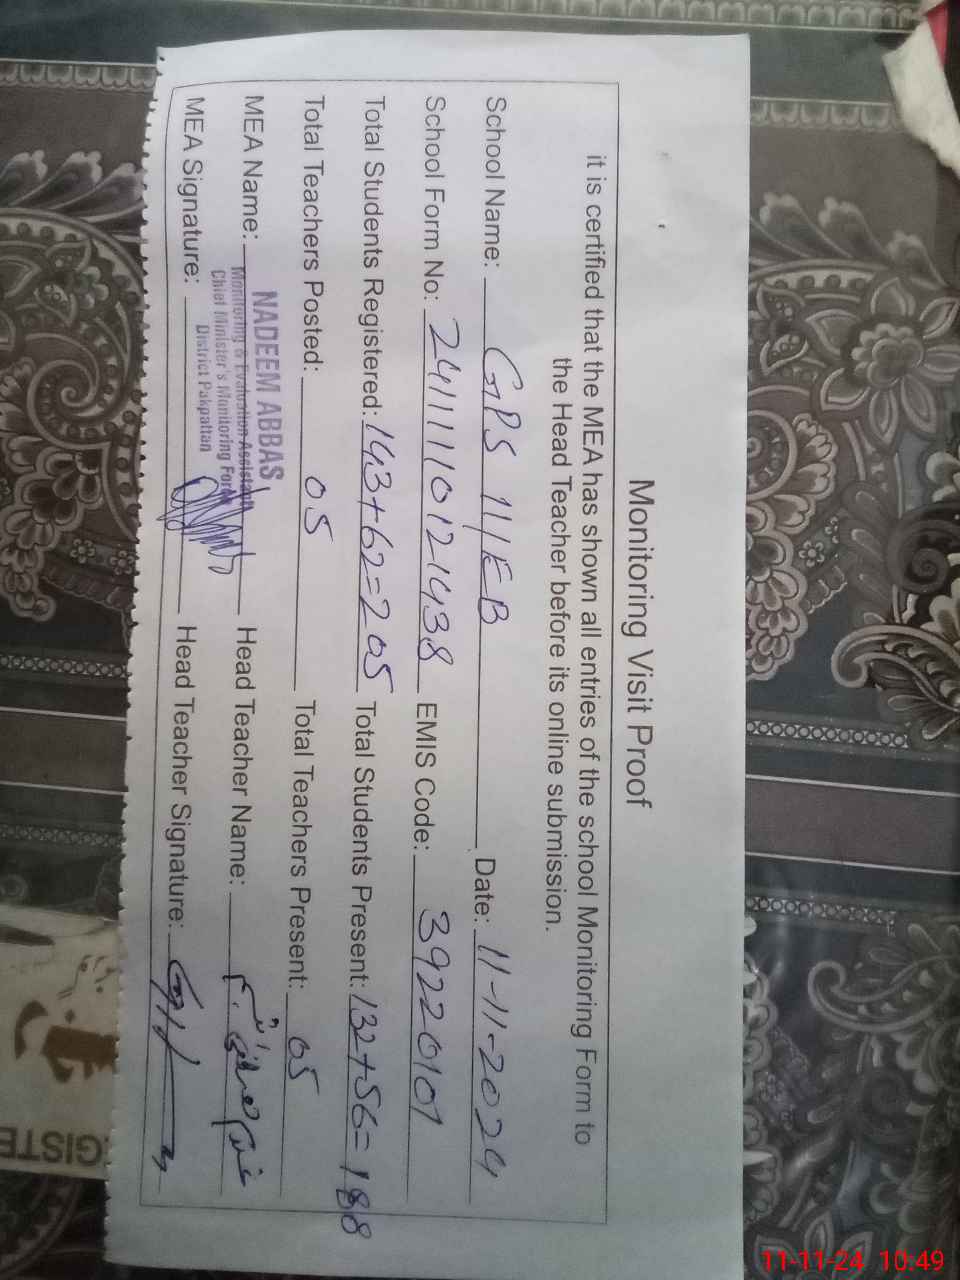 Monitoring Visit Proof
it is certified that the MEA has shown all entries of the school Monitoring Form to
the Head Teacher before its online submission.
School Name: GPS 11/EB Date: 11-11-2024
School Form No: 24111101214 38 EMIS Code: 39220101
Total Students Registered: 143+62=205 Total Students Present: 132+56=188
Total Teachers Posted: 05 Total Teachers Present: 05
MEA Name: NADEEM ABBAS Head Teacher Name:
Monitoring & Evaluation Assistant
Chief Minister's Monitoring Force
District Pakpattan
MEA Signature: Head Teacher Signature:
GISTE
11-11-24 10:49